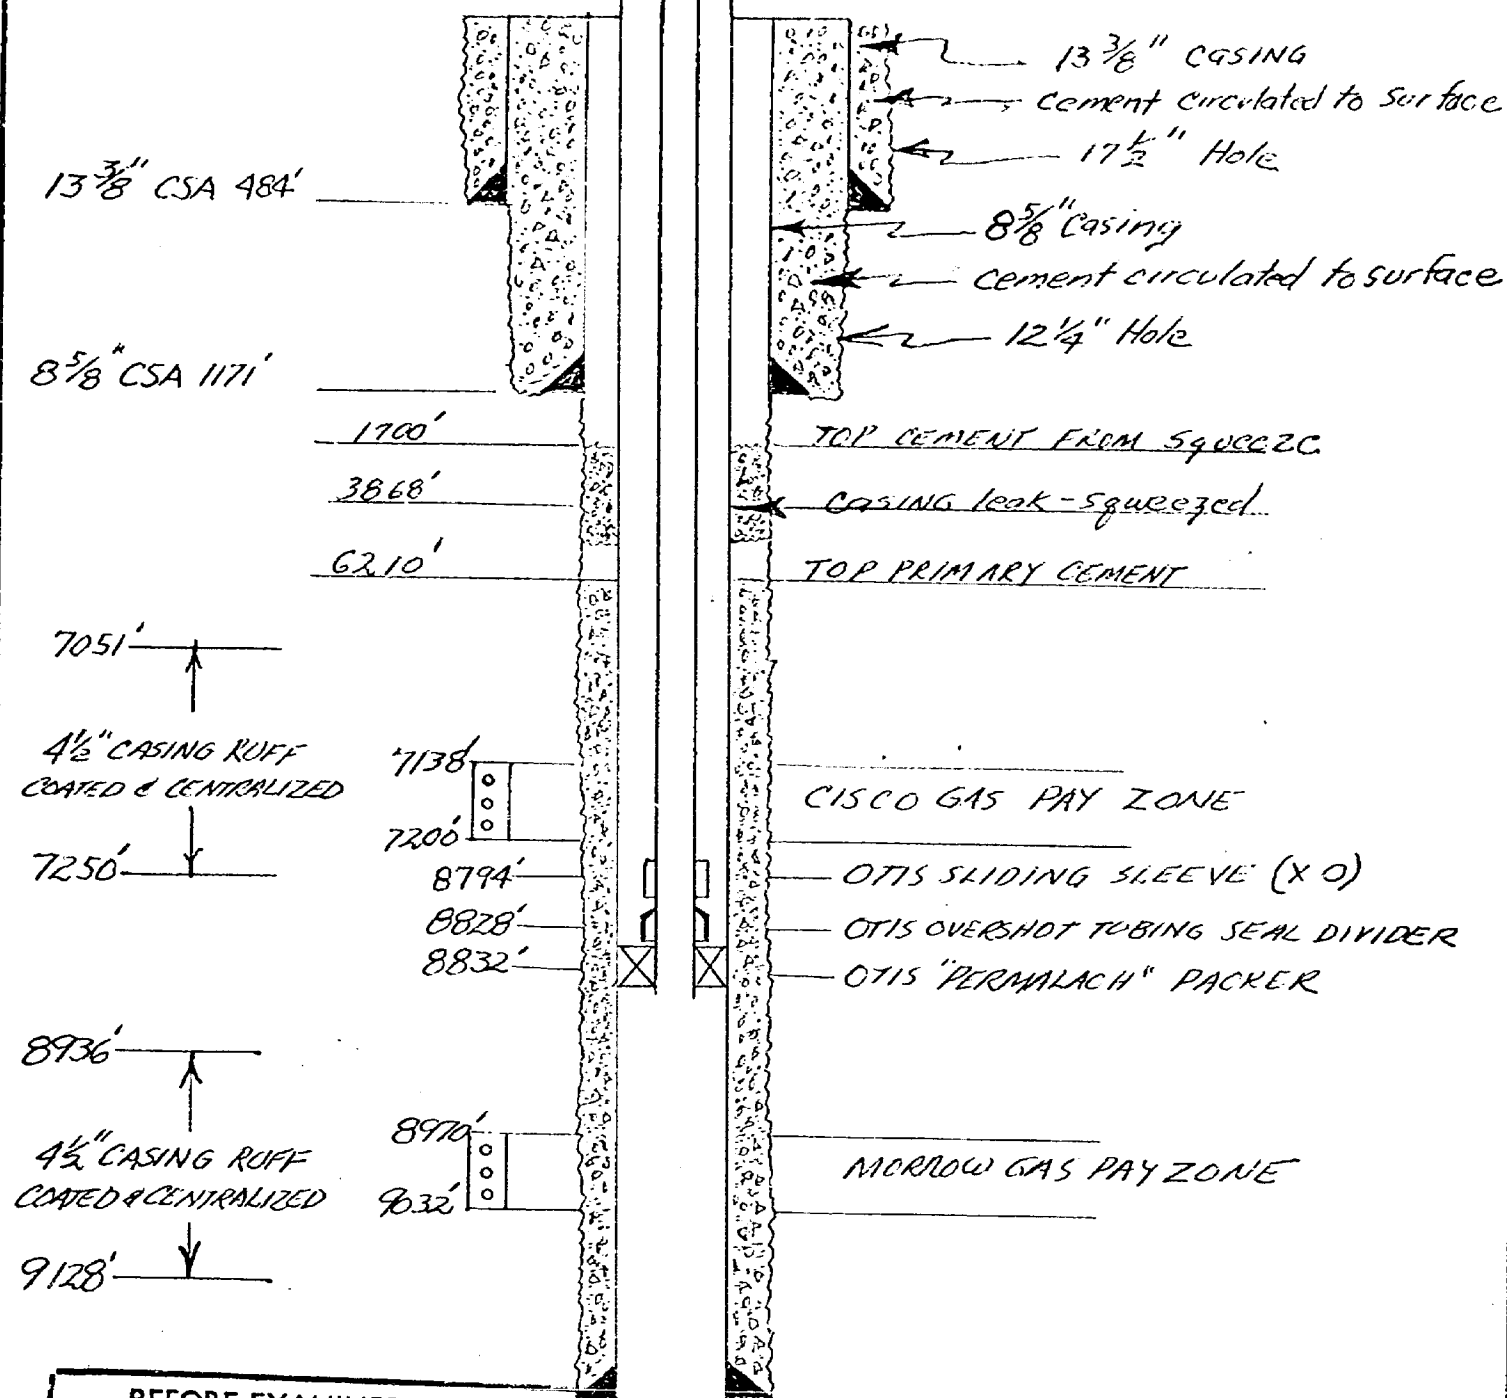 13 3/8" CASING
cement circulated to surface
17 1/2" Hole
13 3/8" CSA 484'
8 5/8" Casing
cement circulated to surface
12 1/4" Hole
8 5/8" CSA 1171'
1700' TOP CEMENT FROM Squeeze
3868' CASING leak-squeezed
6210' TOP PRIMARY CEMENT
7051'
4 1/2" CASING RUFF
COATED & CENTRALIZED
7250'
7138'
CISCO GAS PAY ZONE
7200'
8794' OTIS SLIDING SLEEVE (XO)
8828' OTIS OVERSHOT TUBING SEAL DIVIDER
8832' OTIS "PERMALACH" PACKER
8936'
4 1/2" CASING RUFF
COATED & CENTRALIZED
9128'
8970'
MORROW GAS PAY ZONE
9032'